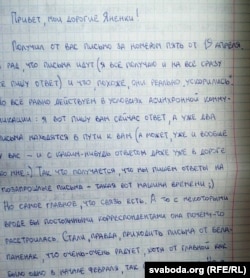 Привет, мои дорогие Яненки!
Получил от вас письмо за номером пять от 15 апреля.
рад, что письма идут (я все получаю и на все сразу
пишу ответ) и что, похоже, они реально ускорились.
Но всё равно действуем в условиях асинхронной комму-
никации: я вот пишу вам сейчас ответ, а уже два
письма находятся в пути к вам (а может, уже и вообще
у вас - и с каким-нибудь ответом даже уже в дороге
ко мне.) Так что получается, что мы пишем ответы на
позапрошлые письма - такая вот машина времени ;)
Но самое главное, что связь есть. А то с некоторыми
вроде бы постоянными корреспондентами она почему-то
расстроилась. Стали, правда, приходить письма от Бела-
панечак, что очень-очень радует, хотя от главной как
было одно в начале февраля, так
svaboda.org (RFE/RL)